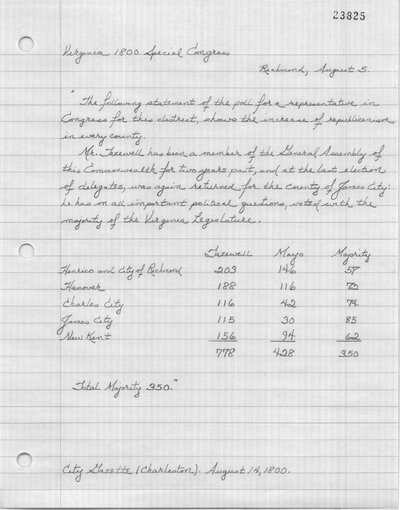 23825
Virginia 1800 Special Congress
Richmond, August 5.
"The following statement of the poll for a representative in
Congress for this district, shows the increase of republicanism
in every county.
Mr. Tazewell has been a member of the General Assembly of
this Commonwealth for two years past, and at the last election
of delegates, was again returned for the County of James City:
he has on all important political questions, voted with the
majority of the Virginia Legislature.
Tazewell Mayo Majority
Henrico and City of Richmond 203 146 57
Hanover 188 116 72
Charles City 116 42 74
James City 115 30 85
New Kent 156 94 62
778 428 350
Total Majority 350."
City Gazette (Charleston). August 14, 1800.